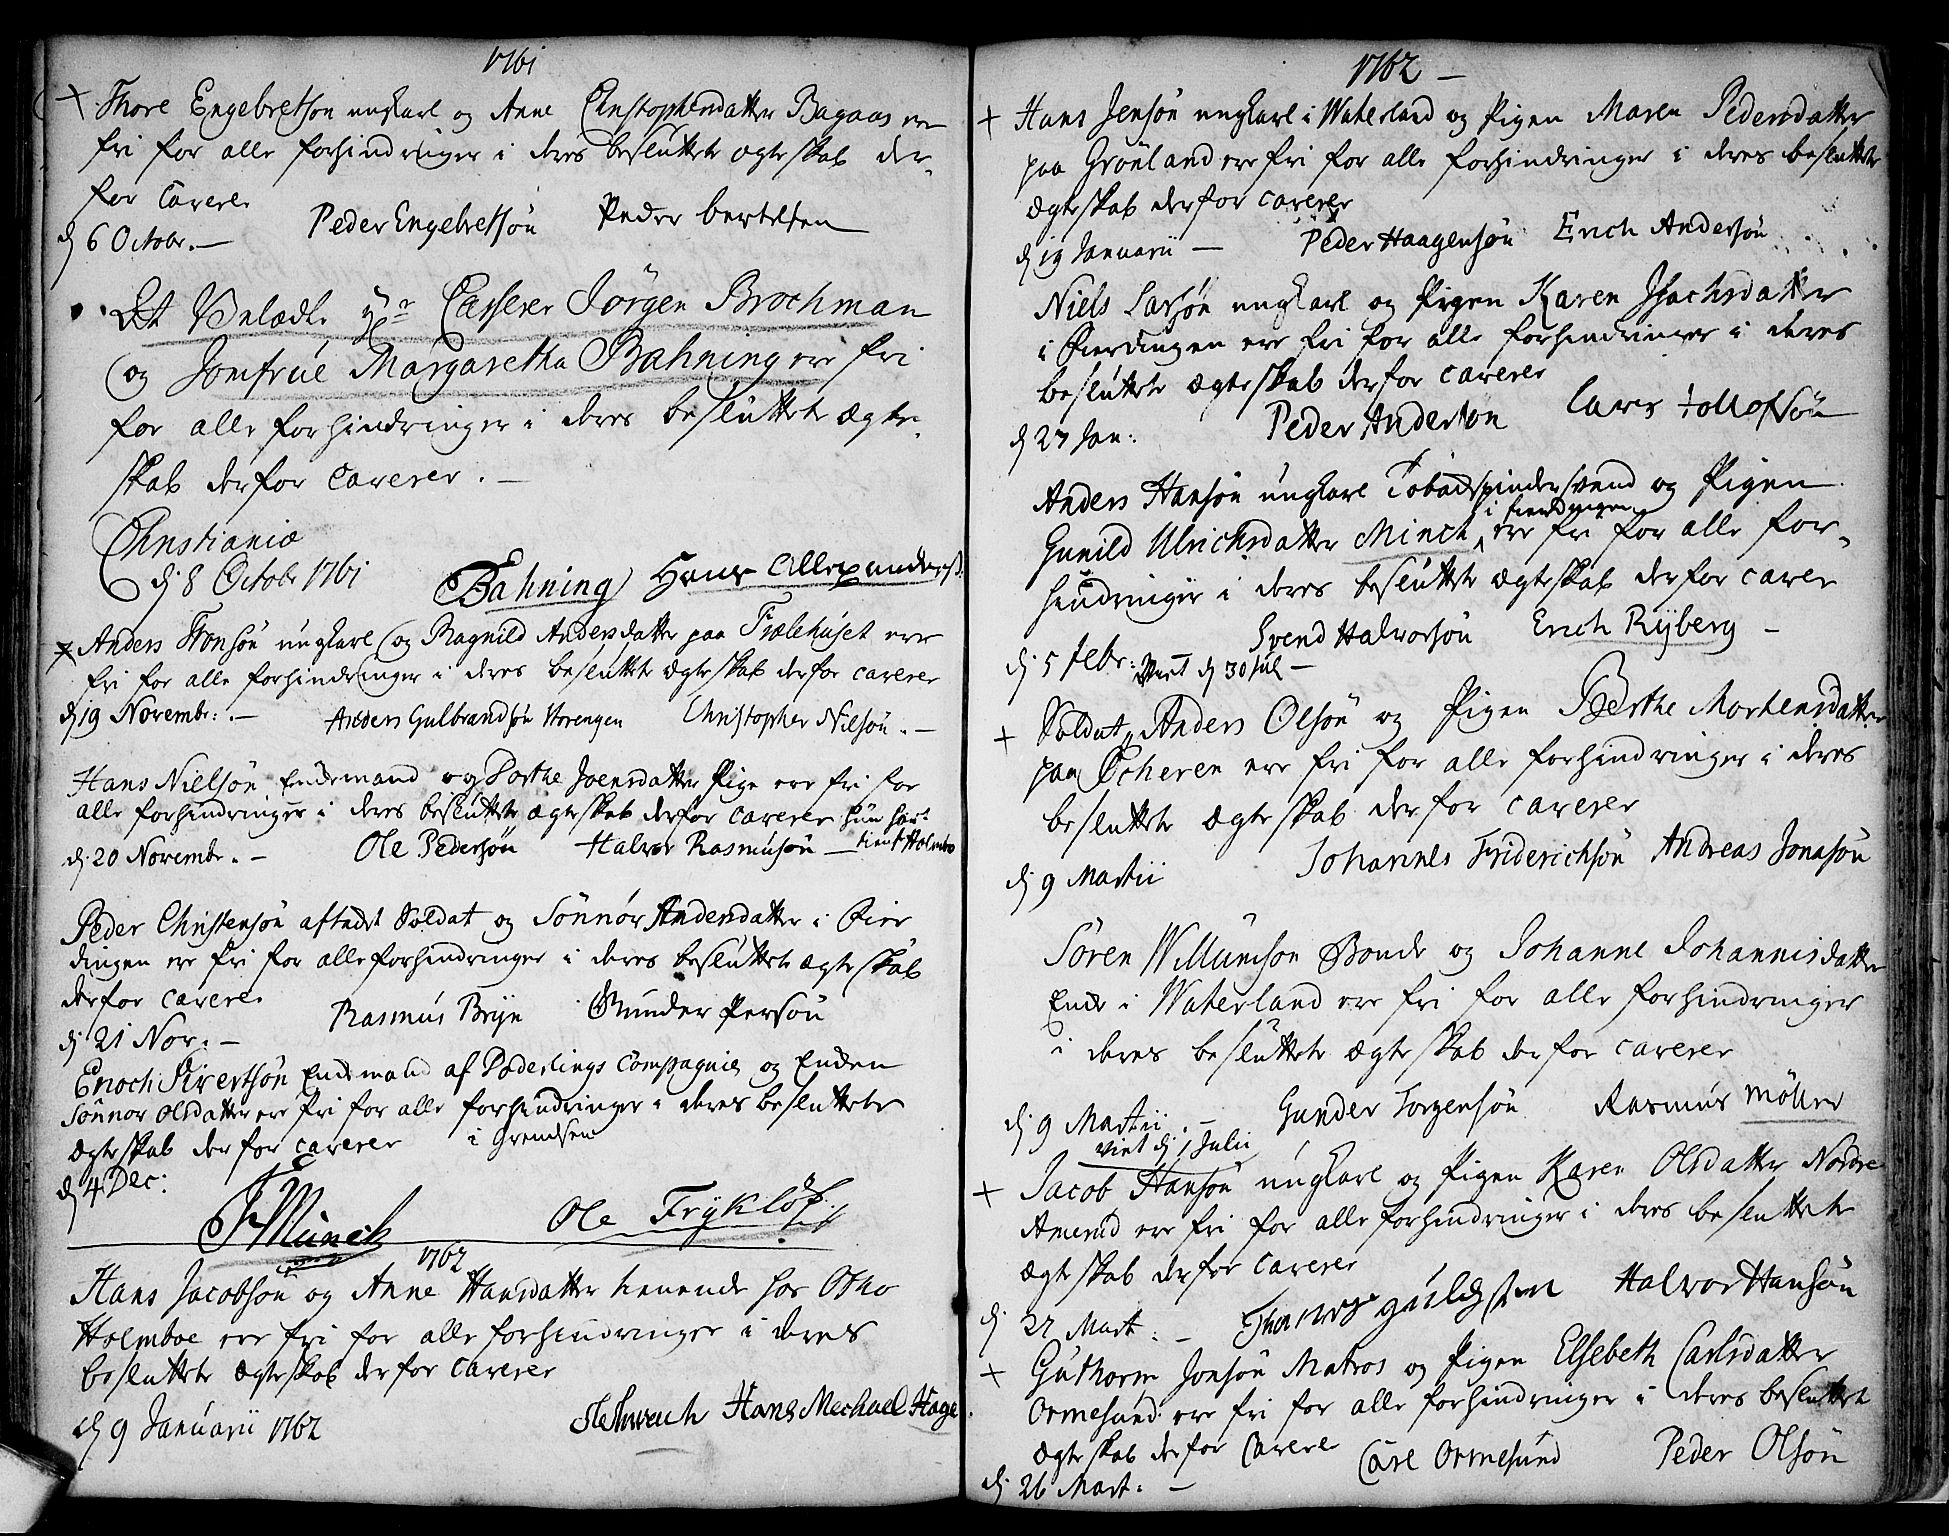 1761
+ Thore Engebretsøn ungkarl og Anne Christophersdatter Bagaas ere
fri for alle forhindringer i deres besluttete ægteskab der„
for Caverer
d 6 Octobr. —
Peder Engebretsøn Peder bertelsen
Det Velædle Hr Casserer Jörgen Brochman
og Jomfrue Margaretha Bahning ere fri
for alle forhindringer i deres besluttete ægte„
skab derfor Caverer. —
Christiania
d 8 Octobr 1761
Bahning Hans Allexanders.
+ Anders Hansøn ungkarl og Ragnild Andersdatter paa Fiælehuset ere
fri for alle forhindringer i deres besluttete ægteskab derfor caverer
d 19 Novembr: —
Anders Gulbrandsøn Vorengen Christopher Nilsøn. —
Hans Nielsøn Enkemand og Dorthe Joensdatter Pige ere fri for
alle forhindringer i deres besluttete ægteskab derfor Caverer hun har
tient Holmbo
d. 20 Novembr. —
Ole Pedersøn Halvor Rasmusøn —
Peder Christensøn aftackt Soldat og Sönnör Andersdatter i Pier
dingen ere fri for alle forhindringer i deres besluttete ægteskab
derfor caverer
d 21 Nov. —
Rasmus Bryn Gunder Persøn
Enoch Sivertsøn Enkemand af Poderlings Compagnie og Enken
Sönnor Olsdatter ere fri for alle forhindringer i deres besluttete
ægteskab derfor caverer i Grendsen
d 4 Dec:
Münch Ole Fryklöf
1762
Hans Jacobsøn og Anne Hansdatter tienende hos Otho
Holmboe ere fri for alle forhindringer i deres
besluttete ægteskab derfor Caverer
d 9 Januarii 1762
Hans Mechael Hage
1762 —
+ Hans Jensøn ungkarl i Waterland og Pigen Maren Pedersdatter
paa Grønland ere fri for alle forhindringer i deres besluttete
ægteskab derfor caverer
d 19 Januarii —
Peder Haagensøn Erich Andersøn
Niels Larsøn ungkarl og Pigen Karen Isachsdatter
i Pierdingen ere fri for alle forhindringer i deres
besluttete ægteskab derfor Caverer
d 27 Jan:
Peder Anderson Lars Tollofsøn
Anders Hansøn ungkarl Tobackspindersvend og Pigen
i Pierdingen
Gunild Ulrichsdatter Minch ere fri for alle for„
hindringer i deres besluttete ægteskab derfor caver
Svend Halvorsøn Erich Rÿberg —
d 5 Febr: Viet d 30 Jul —
+ Soldat Anders Olsøn og Pigen Berthe Mortensdatter
paa Echeren ere fri for alle forhindringer i deres
besluttete ægteskab derfor caverer
d 9 Martii
Johannes Friderichsøn Andreas Jonasøn
Sören Willumson Bonde og Johanne Johannisdatter
Enke i Waterland ere fri for alle forhindringer
i deres besluttete ægteskab derfor caverer
d 9 Martii. —
Gunder Torgensøn Rasmus Möller
viet d 1 Julii
+ Jacob Hansøn ungkarl og Pigen Karen Olsdatter Nordre
Amerud ere fri for alle forhindringer i deres besluttete
ægteskab derfor Caverer
d 22 Mart: —
Halvor Hansøn
+ Guthorm Jonsøn Matros og Pigen Elsebeth Carlsdatter
Ormesund ere fri for alle forhindringer i deres besluttet
ægteskab derfor Caverer
Carl Ormesund Peder Olsøn
d 26 Mart. —